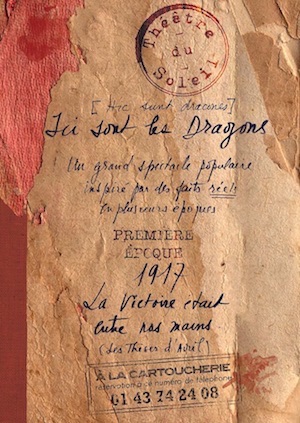 Théâtre
du
Soleil
[Hic sunt dracones]
Ici sont les Dragons
Un grand spectacle populaire
inspiré par des faits réels
En plusieurs époques
PREMIÈRE
ÉPOQUE
1917
La Victoire était
entre nos mains
(Les Thèses d'Avril)
À LA CARTOUCHERIE
réservations à ce numéro de téléphone
01 43 74 24 08